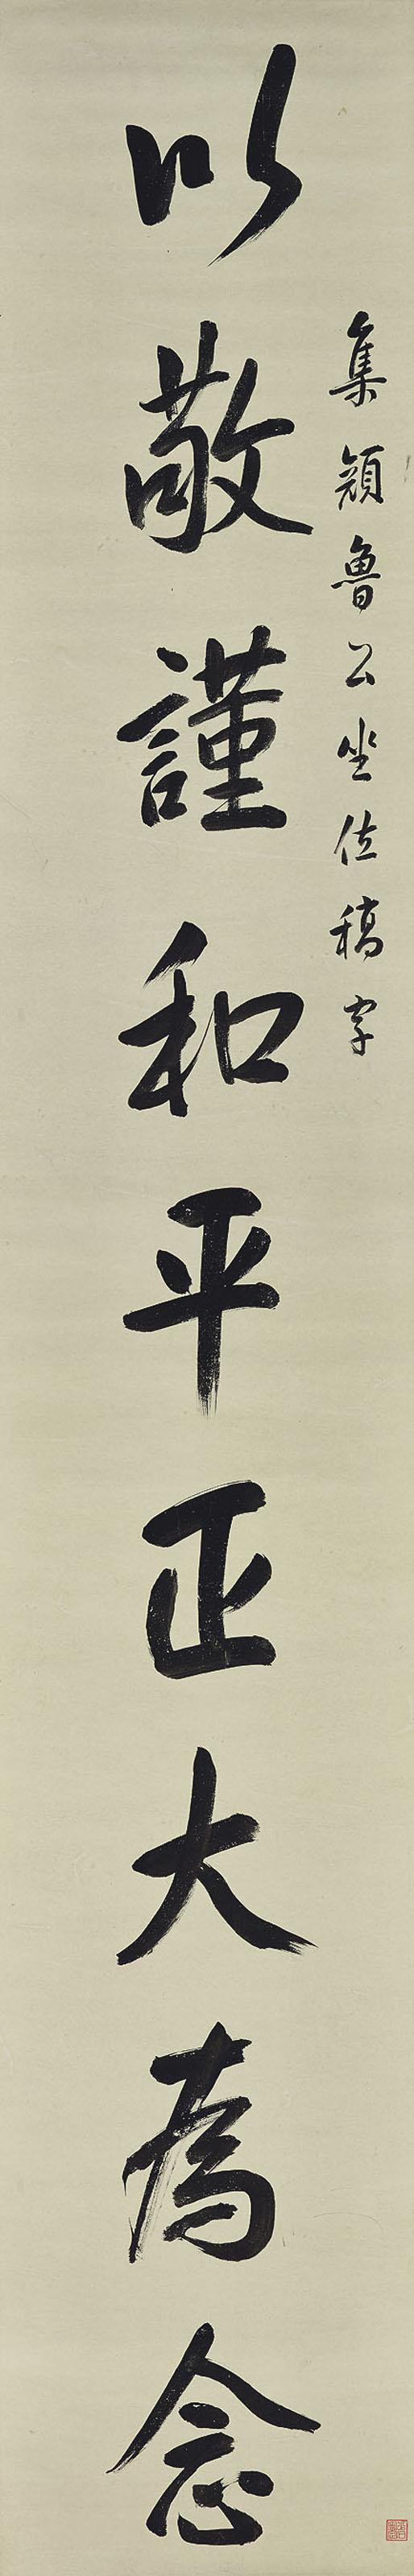 集顏魯公坐位稿字
以敬謹和平正大為念